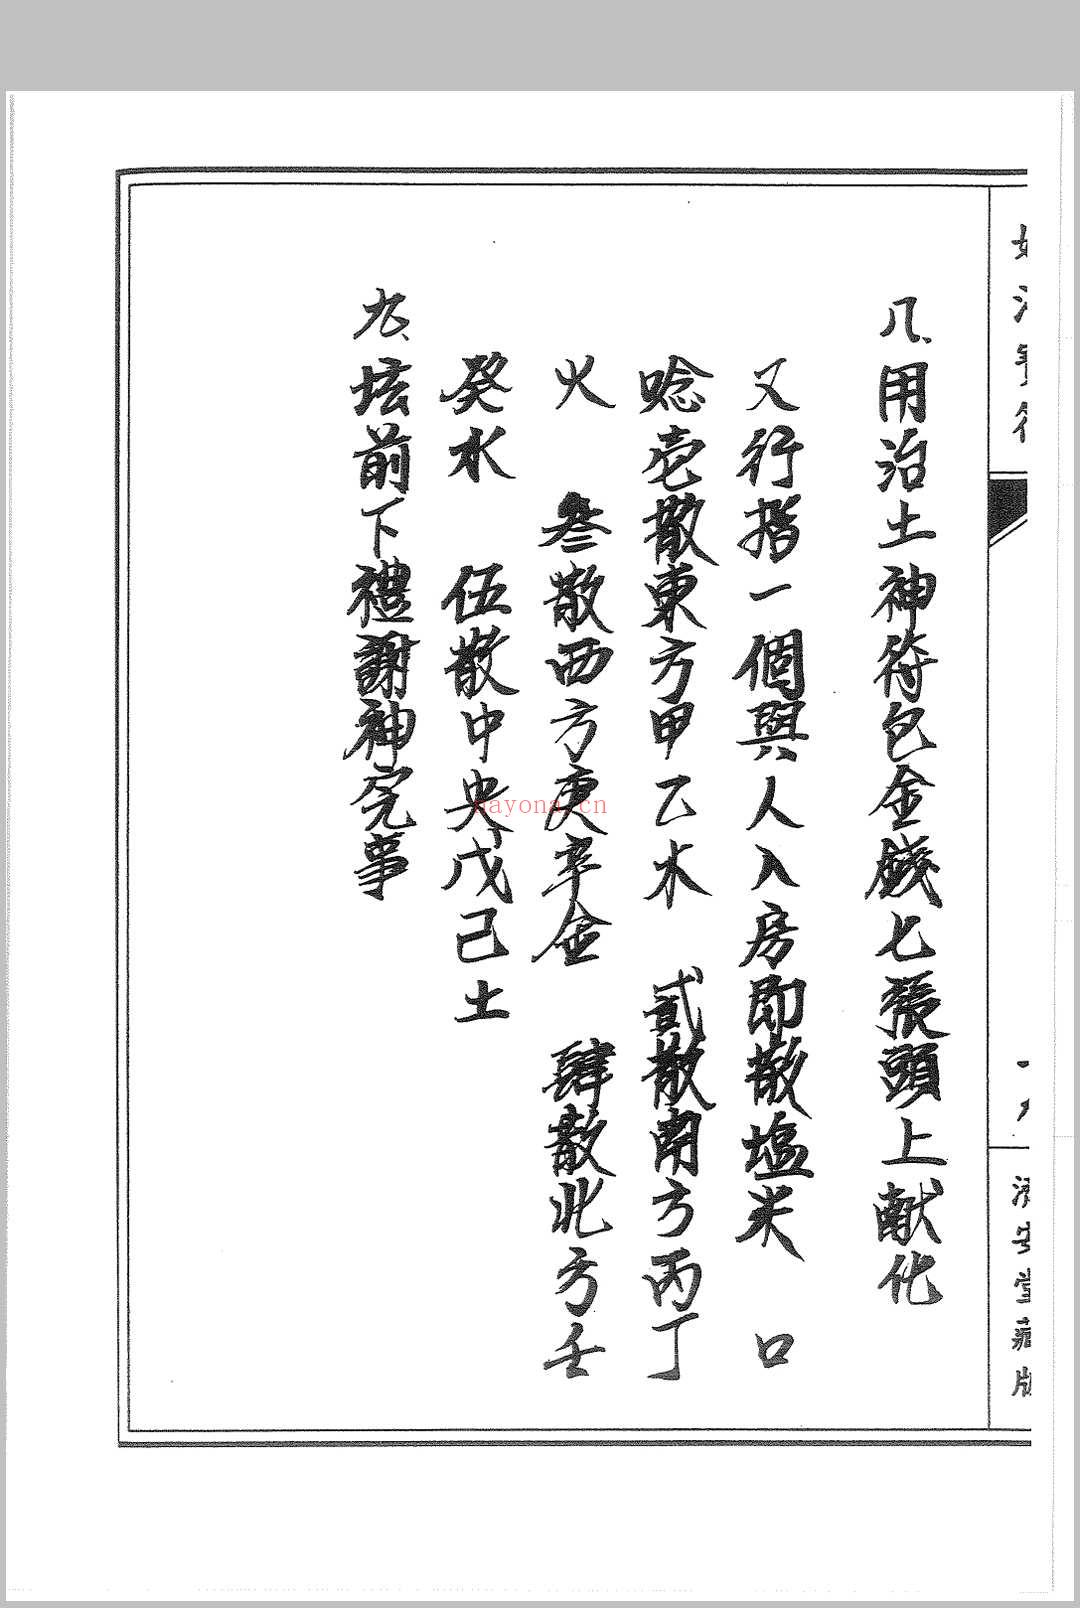 八、用治土神符包金錢七張頭上献化
又行指一個與人入房即散塩米　口
唸壱散東方甲乙木　貳散南方丙丁
火　叁散西方庚辛金　肆散北方壬
癸水　伍散中央戊己土
九、坛前下禮謝神完事
nayona.cn